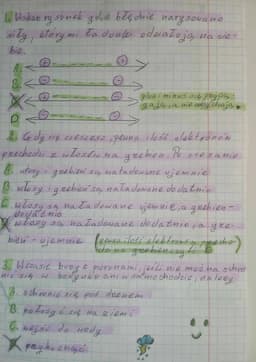 1. Wskaż rysunek gdzie błędnie narysowano
siły, którymi ładunki oddziałują na sie-
bie.
A.
B.
C. plus i minus się przycią-
gają, a nie odpychają.
D.
2. Gdy się czeszesz, pewna ilość elektronów
przechodzi z włosów na grzebień. Po czesaniu
A. włosy i grzebień są naładowane ujemnie
B. włosy i grzebień są naładowane dodatnio
C. włosy są naładowane ujemnie, a grzebień-
dodatnio
włosy są naładowane dodatnio, a grze-
bień - ujemnie (pewna ilość elektronów
do na grzebień)
3. W czasie burzy z piorunami, jeśli nie można schro-
nić się w budynku ani w samochodzie, należy
A. schronić się pod drzewem
B. położyć się na ziemi
C. wejść do wody
przykucnąć